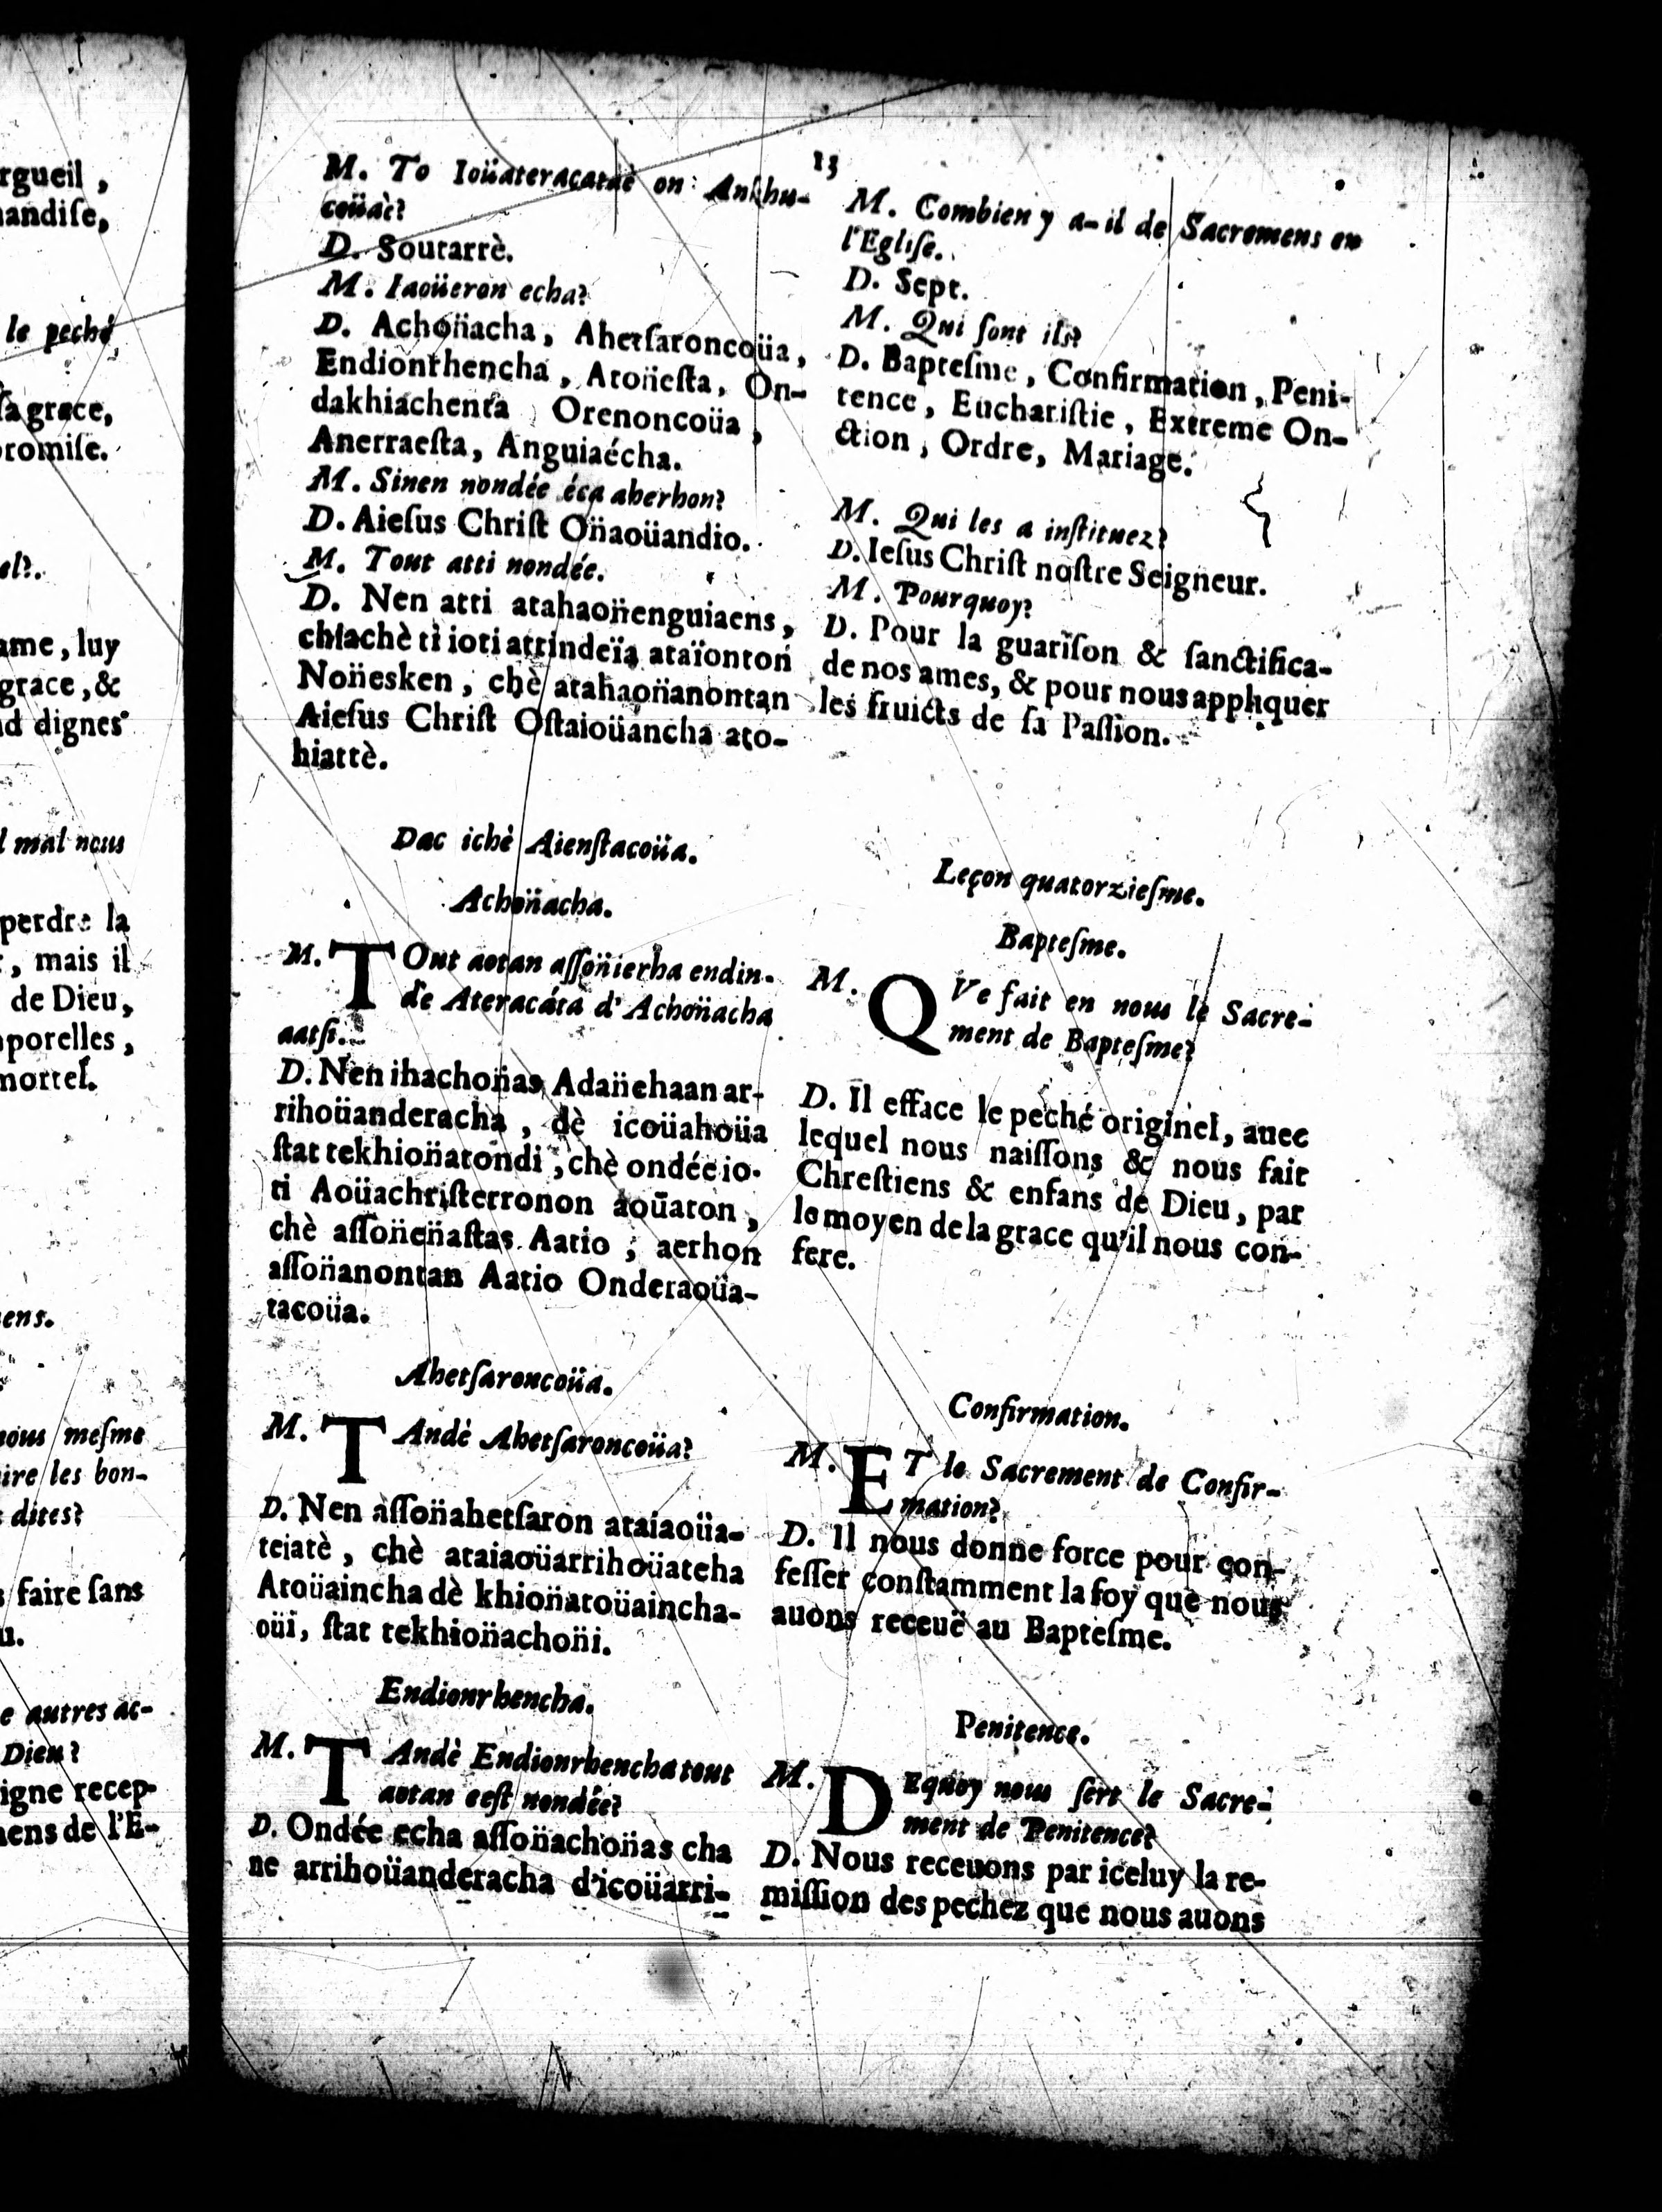 rgueil,
andiſe,
le peché
ſa grace,
romiſe.
el?
ame, luy
grace, &
d dignes
l mal nous
perdre la
, mais il
de Dieu,
porelles,
mortel.
ens.
nous meſme
ire les bon-
dites?
faire ſans
u.
e autres ac-
Dieu?
igne recep-
ens de l'E-
13
M. To Ioüateracataè on Anſhu-
coüac?
D. Soutarrè.
M. Iaoüeron echa?
D. Achon̈acha, Ahetſaroncoüa,
Endionrhencha, Aton̈eſta, On-
dakhiachenta Orenoncoüa,
Anerraeſta, Anguiaécha.
M. Sinen nondée éca aherhon?
D. Aieſus Chriſt On̈aoüandio.
M. Tout atti nondée.
D. Nen atti atahaon̈enguiaens,
chiachè ti ioti attindeïa ataïonton
Non̈esken, chè atahaon̈anontan
Aieſus Chriſt Oſtaioüancha ato-
hiattè.
Dac ichè Aienſtacoüa.
Achon̈acha.
M. TOut aotan aſſon̈ierha endin-
de Ateracáta d'Achon̈acha
aatſi.
D. Nen ihachon̈as Adan̈ehaan ar-
rihoüanderacha, dè icoüahoüa
ſtat tekhion̈atondi, chè ondée io-
ti Aoüachriſterronon aoüaton,
chè aſſon̈en̈aſtas Aatio; aerhon
aſſon̈anontan Aatio Onderaoüa-
tacoüa.
Ahetſaroncoüa.
M. TAndè Ahetſaroncoüa?
D. Nen aſſon̈ahetſaron ataiaoüa-
teiatè, chè ataiaoüarrihoüateha
Atoüaincha dè khion̈atoüaincha-
oüi, ſtat tekhion̈achon̈i.
Endionrhencha.
M. TAndè Endionrhencha tout
aotan eeſt nondée?
D. Ondée echa aſſon̈achon̈as cha
ne arrihoüanderacha d'icoüarri-
M. Combien y a-il de Sacremens en
l'Egliſe.
D. Sept.
M. Qui ſont ils?
D. Bapteſme, Confirmation, Peni-
tence, Euchariſtie, Extreme On-
ction, Ordre, Mariage.
M. Qui les a inſtituez?
D. Ieſus Chriſt noſtre Seigneur.
M. Pourquoy?
D. Pour la guariſon & ſanctifica-
de nos ames, & pour nous appliquer
les fruicts de ſa Paſſion.
Leçon quatorzieſme.
Bapteſme.
M. QVe fait en nous le Sacre-
ment de Bapteſme?
D. Il efface le peché originel, auec
lequel nous naiſſons & nous fait
Chreſtiens & enfans de Dieu, par
le moyen de la grace qu'il nous con-
fere.
Confirmation.
M. ET le Sacrement de Confir-
mation?
D. Il nous donne force pour con-
feſſer conſtamment la foy que nous
auons receuë au Bapteſme.
Penitence.
M. DEquoy nous ſert le Sacre-
ment de Penitence?
D. Nous receuons par iceluy la re-
miſſion des pechez que nous auons